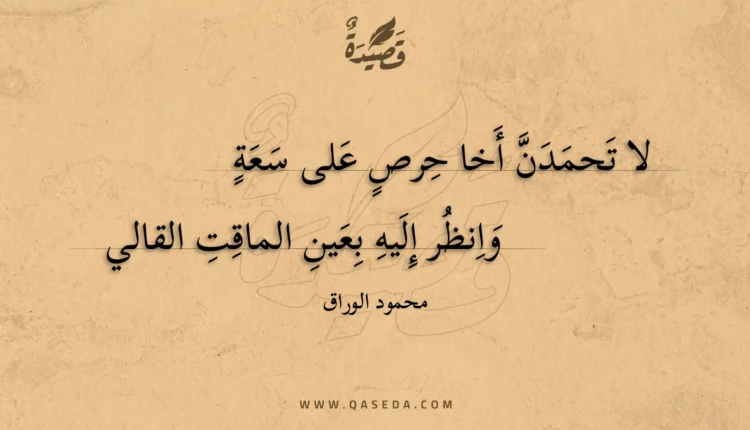 قَصِيدَةٌ
لا تَحمَدَنَّ أَخا حِرصٍ عَلى سَعَةٍ
وَاِنظُر إِلَيهِ بِعَينِ الماقِتِ القالي
محمود الوراق
WWW.QASEDA.COM